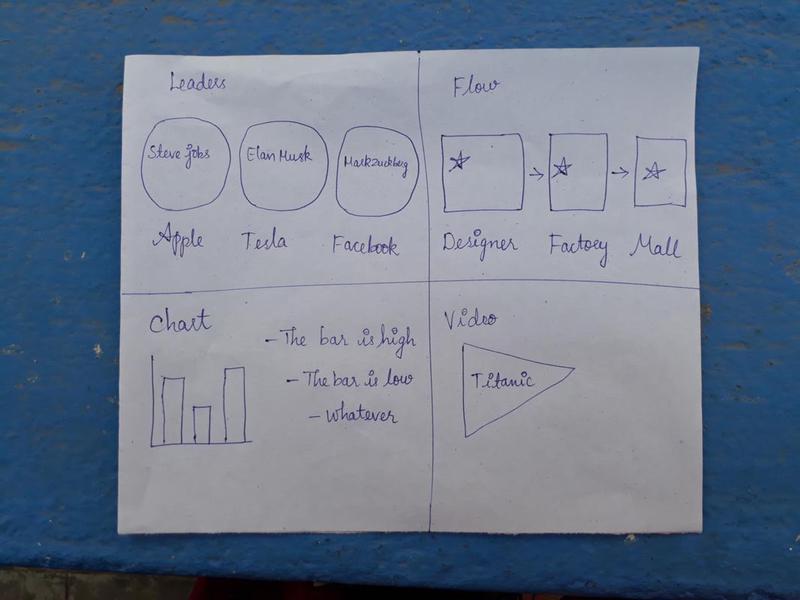 Leaders
Steve jobs
Elan Musk
Markzuckberg
Apple
Tesla
Facebook
Flow
Designer
Factoey
Mall
Chart
- The bar is high
- The bar is low
- whatever
Video
Titanic